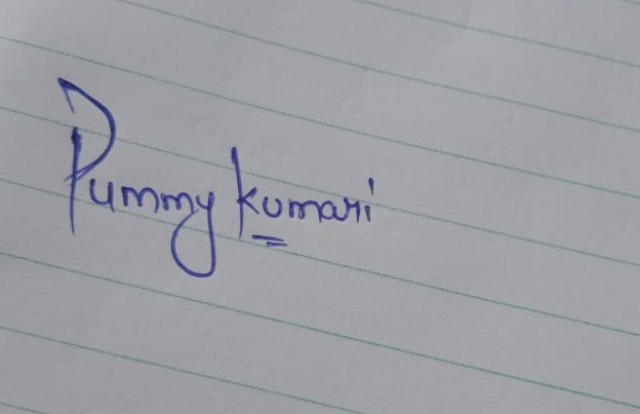 Pummy kumari